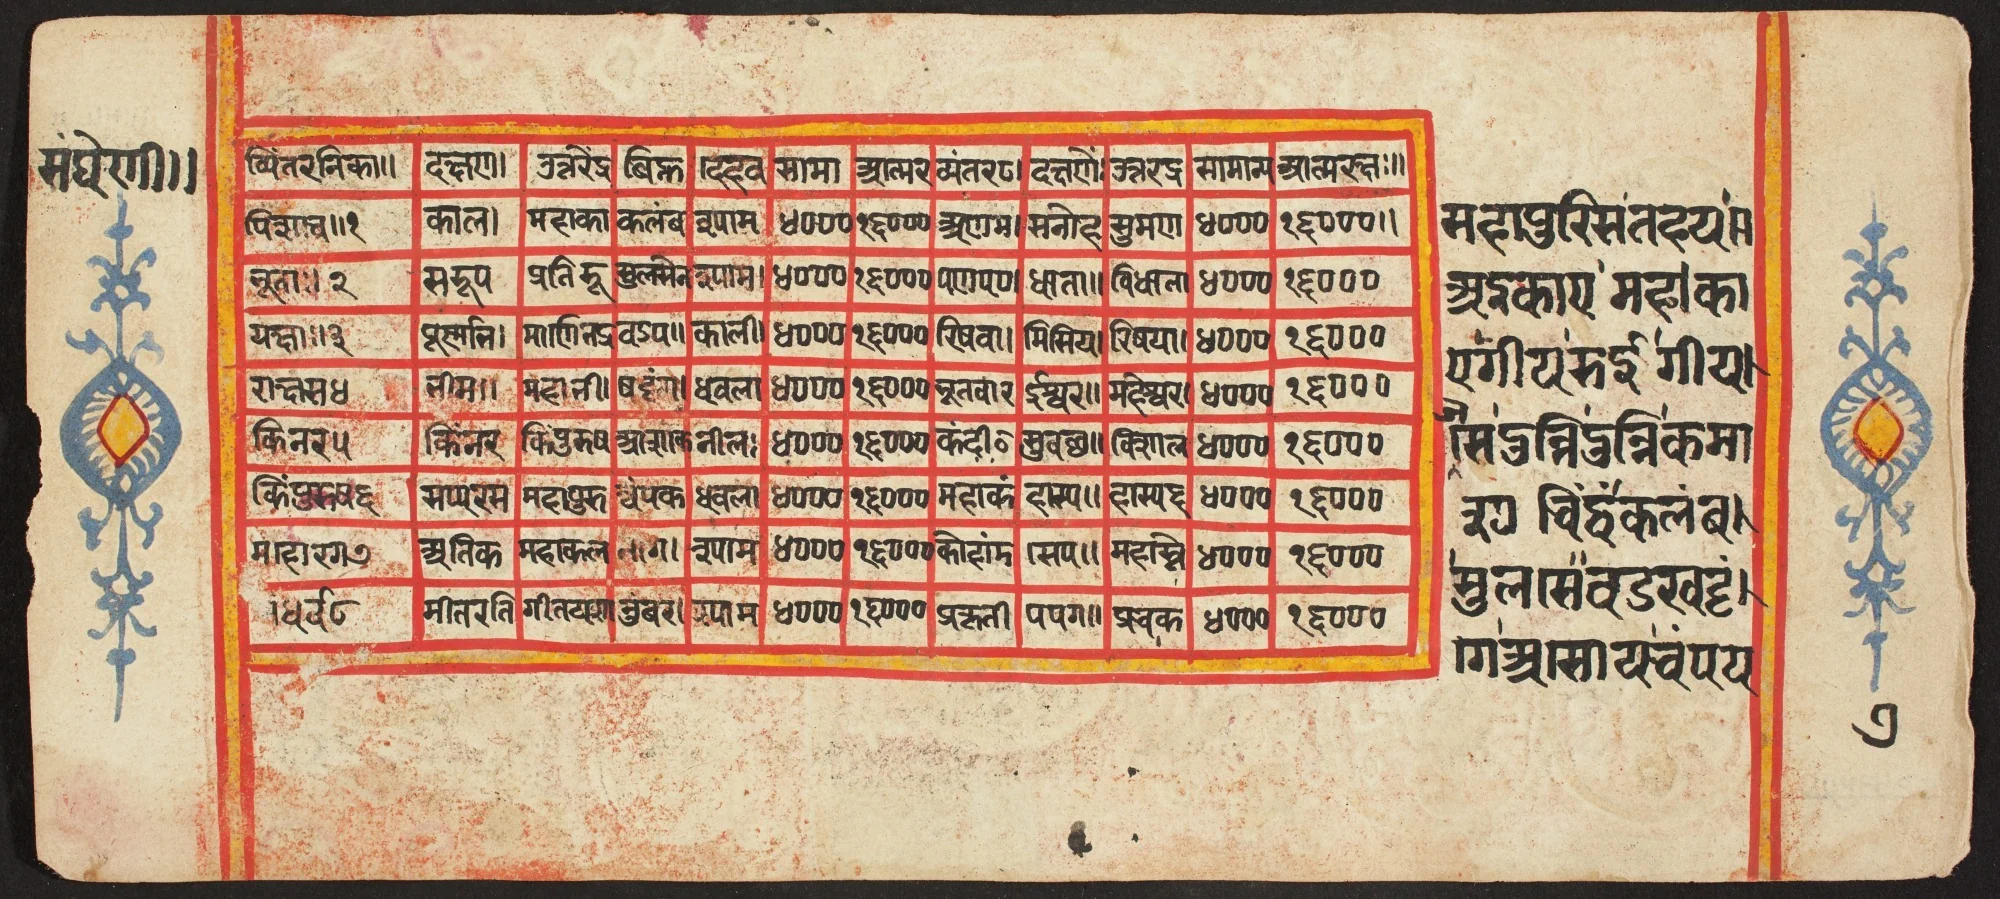 संघेरणी॥
व्यिंतरनिका॥ दक्षण। उत्तरिंद्र बिह्न दिहव सामा आत्मर व्यंतर८। दक्षणें। उत्तरद्र सामान्य आत्मरक्षः॥
पिशाच॥१ काल। महाका कलंब श्याम ४००० १६००० अणम। सनीह सुमण ४००० १६०००॥
भूताः। २ सरूप प्रतिरू सुलसेन श्याम। ४००० १६००० पाणप०। धाता॥ विधाता ४००० १६०००
यक्षाः।३ पूरणनि। माणिभद्र वडप॥ काली। ४००० १६००० रिषवा। मिसिय। रिषया। ४००० १६०००
राक्षस४ भीम॥ महाभी। षट्टंग। धवला ४००० १६००० भूतवार ईश्वर॥ महेश्वर। ४००० १६०००
किंनर५ किंनर किंपुरुष आशोक नीलः ४००० १६००० कंदी० सुवछ॥ विशाल ४००० १६०००
किंपुरुष६ सप्पुरुस महापुरु चंपक धवला ४००० १६००० महाकं हास्य॥ हास्य६ ४००० १६०००
माहारग७ अतिक महाकल नाग। श्याम ४००० १६००० कोहांद सिप॥ महास्वि ४००० १६०००
धर्व८ गीतरति गीतयश तुंबर। श्याम ४००० १६००० प्रहनी पपग॥ प्रवक ४००० १६०००
महापुरिसंतहयं॥
अइकाय महाका
यगीयरुईगीय।
सिंउन्निंउन्निंकमा
श्य चिंहंकलंब।
सुलसिंवडखट्टं।
गआसोयचंपय
७